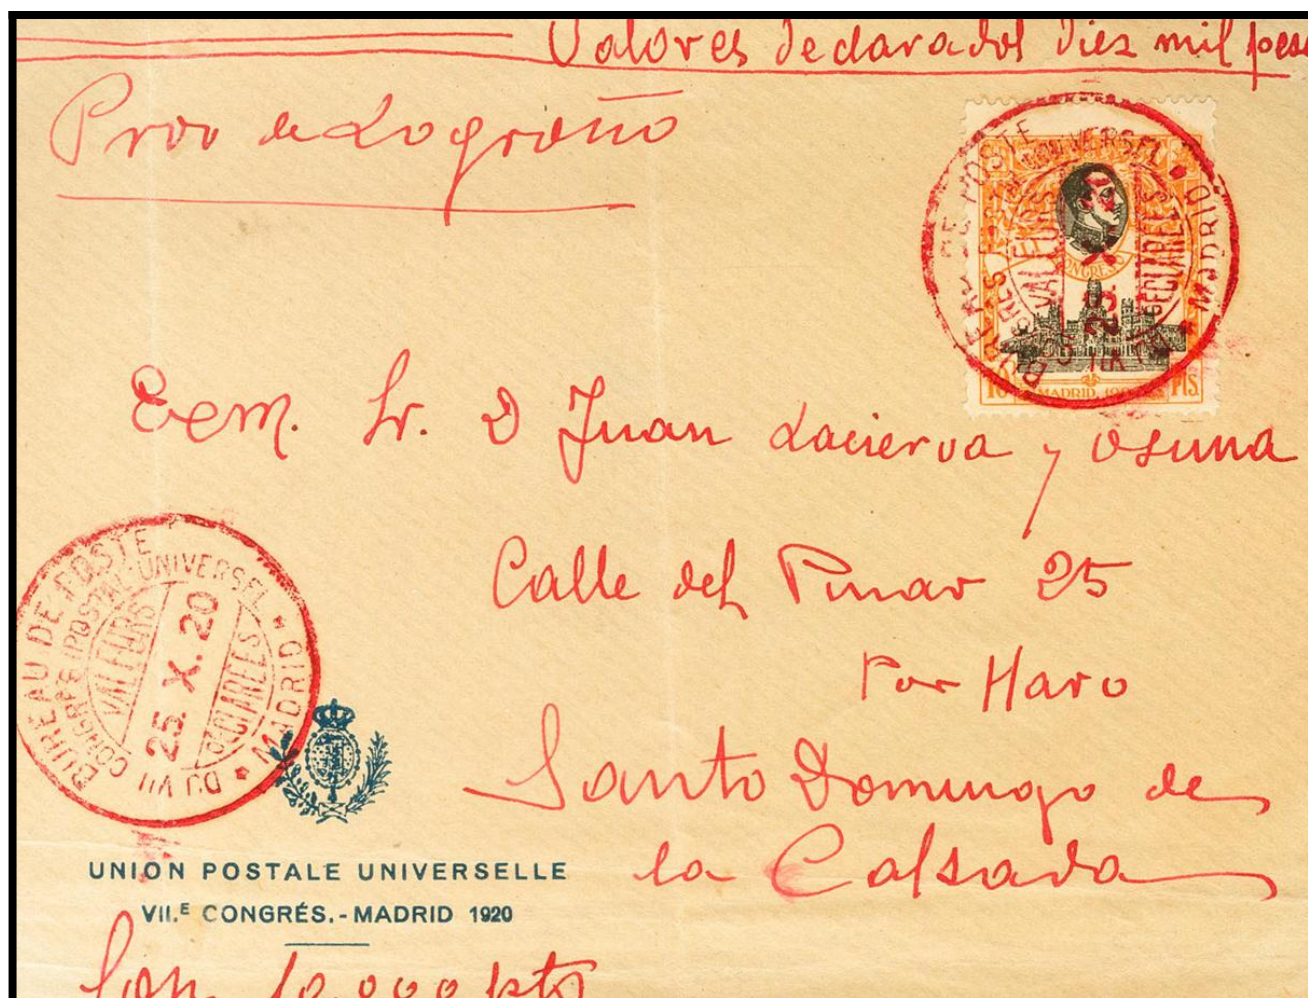 Valores declarados diez mil pese
Prov de Logroño
BUREAU DE POSTE
DU VII CONGRÉS POSTAL UNIVERSEL
MADRID
VALEURS
DECLAREES
CONGRESO
MADRID
10 PTS.
Exm. Sr. D Juan Lacierva y Osuna
Calle del Pinar 25
Por Haro
Santo Domingo de
la Calsada
BUREAU DE POSTE
DU VII CONGRÉS POSTAL UNIVERSEL
MADRID
VALEURS
25. X. 20
DECLAREES
UNION POSTALE UNIVERSELLE
VII.E CONGRÉS.-MADRID 1920
Son 10.000 pts